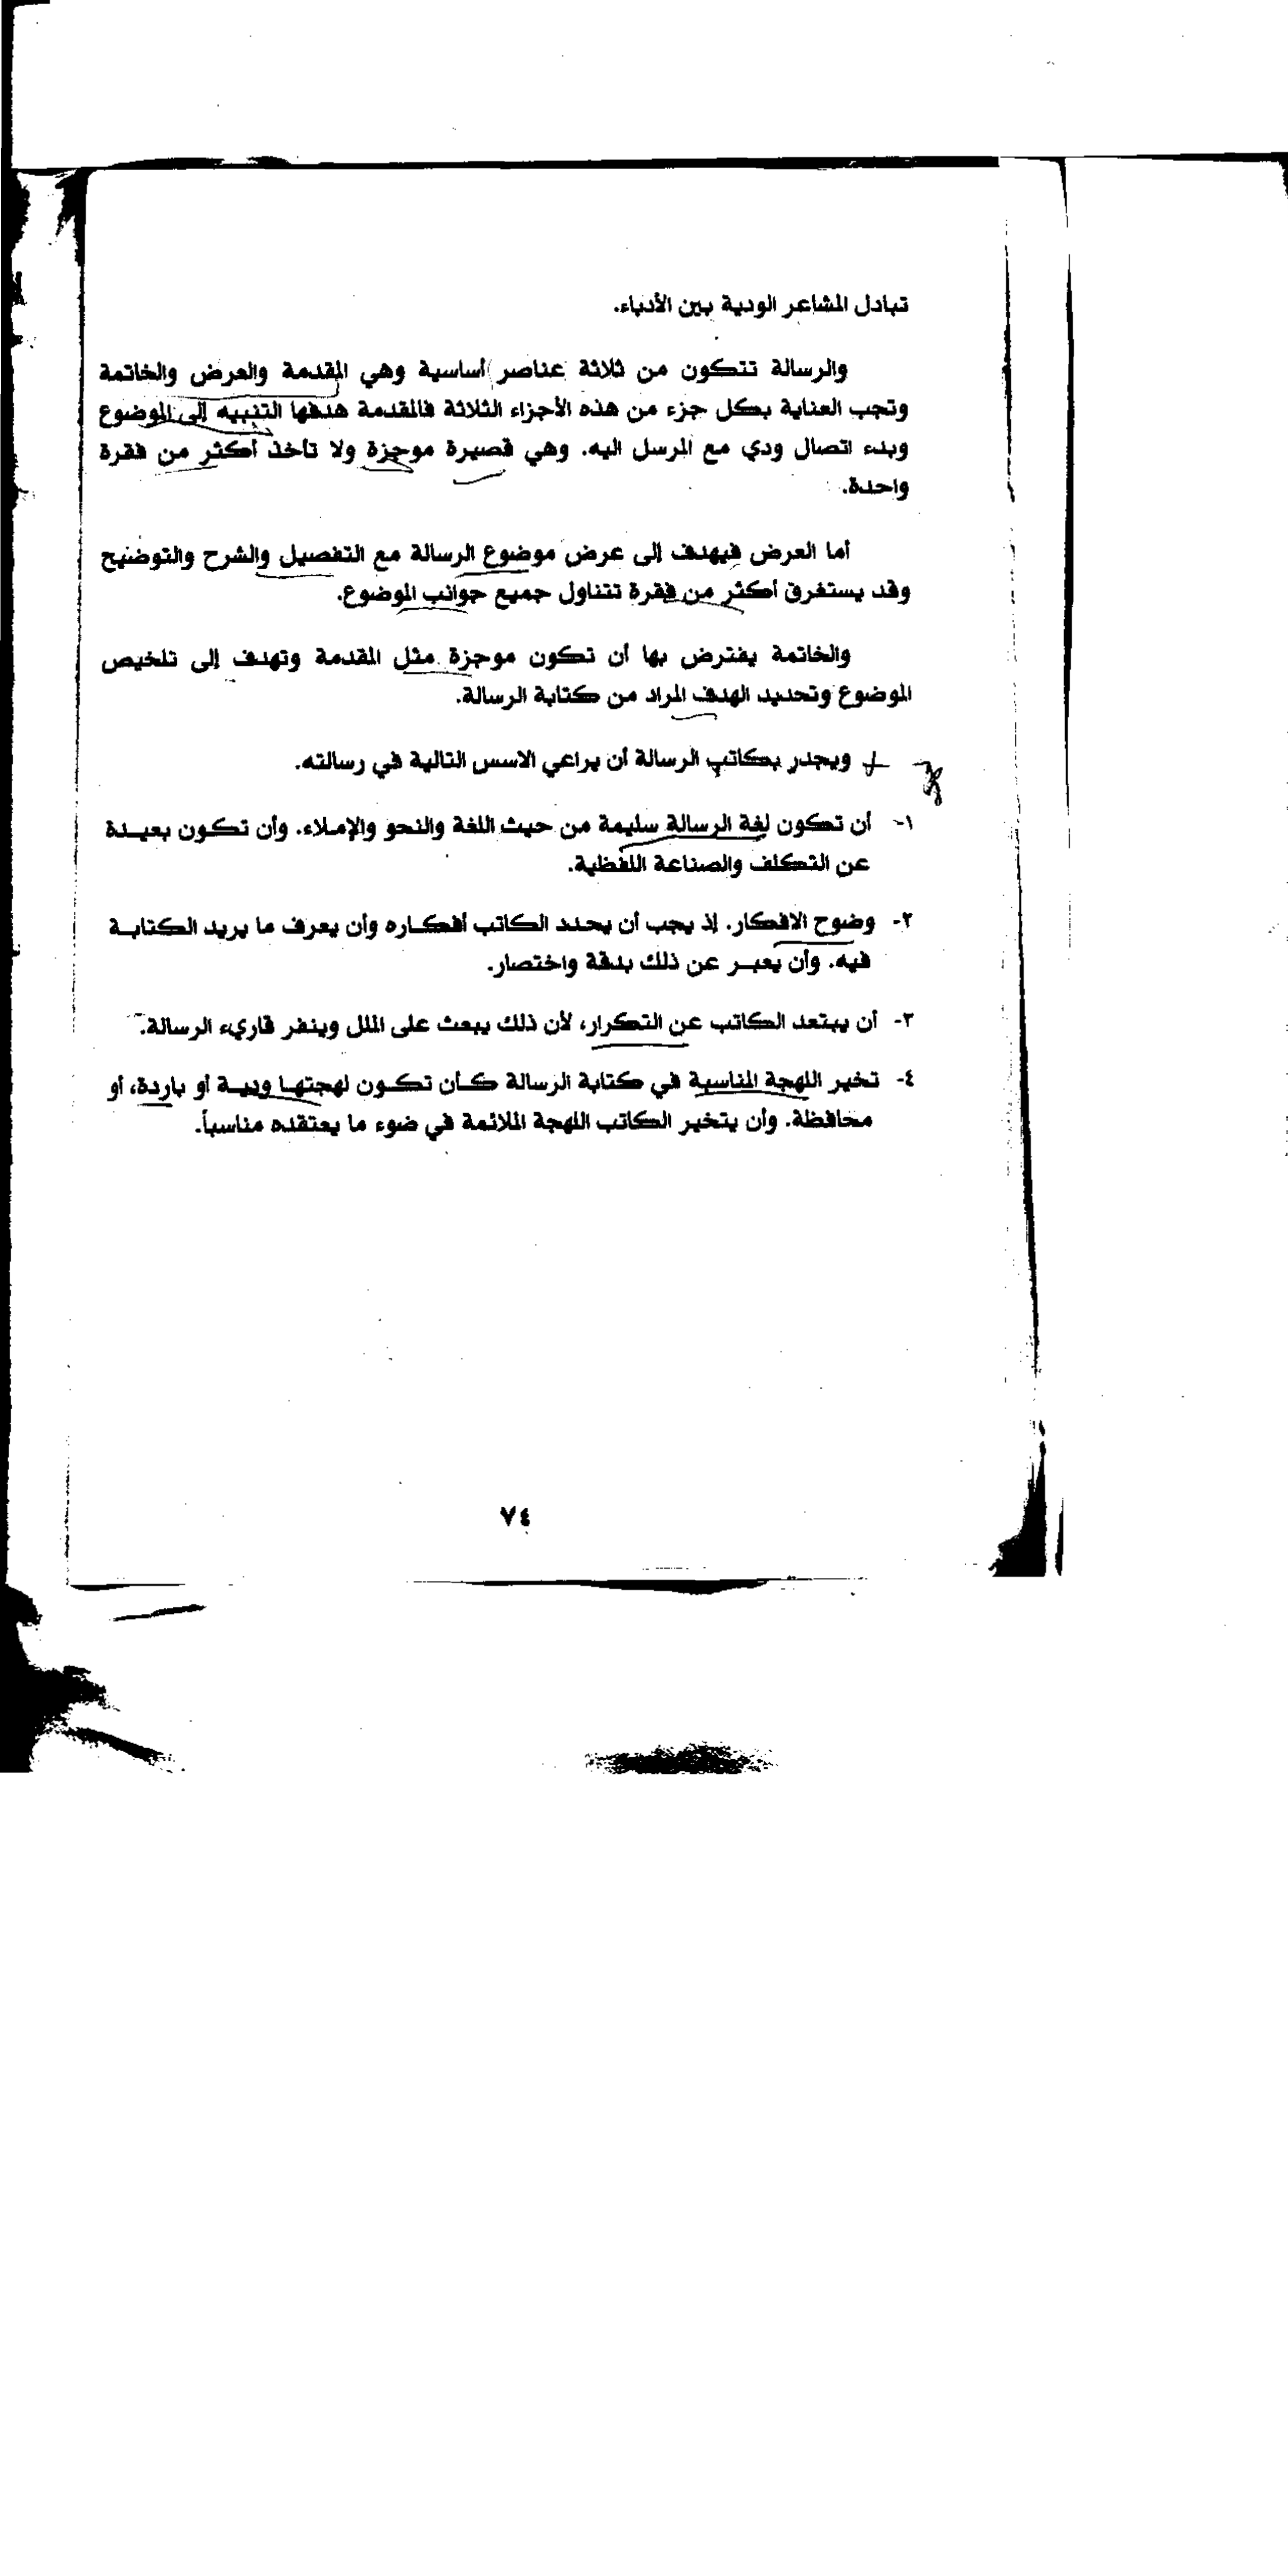 تبادل المشاعر الودية بين الأدباء.
والرسالة تتكون من ثلاثة عناصر أساسية وهي المقدمة والعرض والخاتمة
وتجب العناية بكل جزء من هذه الأجزاء الثلاثة فالمقدمة هدفها التنبيه إلى الموضوع
وبدء اتصال ودي مع المرسل اليه. وهي قصيرة موجزة ولا تأخذ أكثر من فقرة
واحدة.
أما العرض فيهدف إلى عرض موضوع الرسالة مع التفصيل والشرح والتوضيح
وقد يستغرق أكثر من فقرة تتناول جميع جوانب الموضوع.
والخاتمة يفترض بها أن تكون موجزة مثل المقدمة وتهدف إلى تلخيص
الموضوع وتحديد الهدف المراد من كتابة الرسالة.
ويجدر بكاتب الرسالة أن يراعي الاسس التالية في رسالته.
١- أن تكون لغة الرسالة سليمة من حيث اللغة والنحو والإملاء. وأن تكون بعيدة
عن التكلف والصناعة اللفظية.
٢- وضوح الافكار. إذ يجب أن يحدد الكاتب أفكاره وأن يعرف ما يريد الكتابة
فيه. وأن يعبر عن ذلك بدقة واختصار.
٣- أن يبتعد الكاتب عن التكرار، لأن ذلك يبعث على الملل وينفر قاريء الرسالة.
٤- تخير اللهجة المناسبة في كتابة الرسالة كأن تكون لهجتها ودية أو باردة، أو
محافظة. وأن يتخير الكاتب اللهجة الملائمة في ضوء ما يعتقده مناسباً.
٧٤